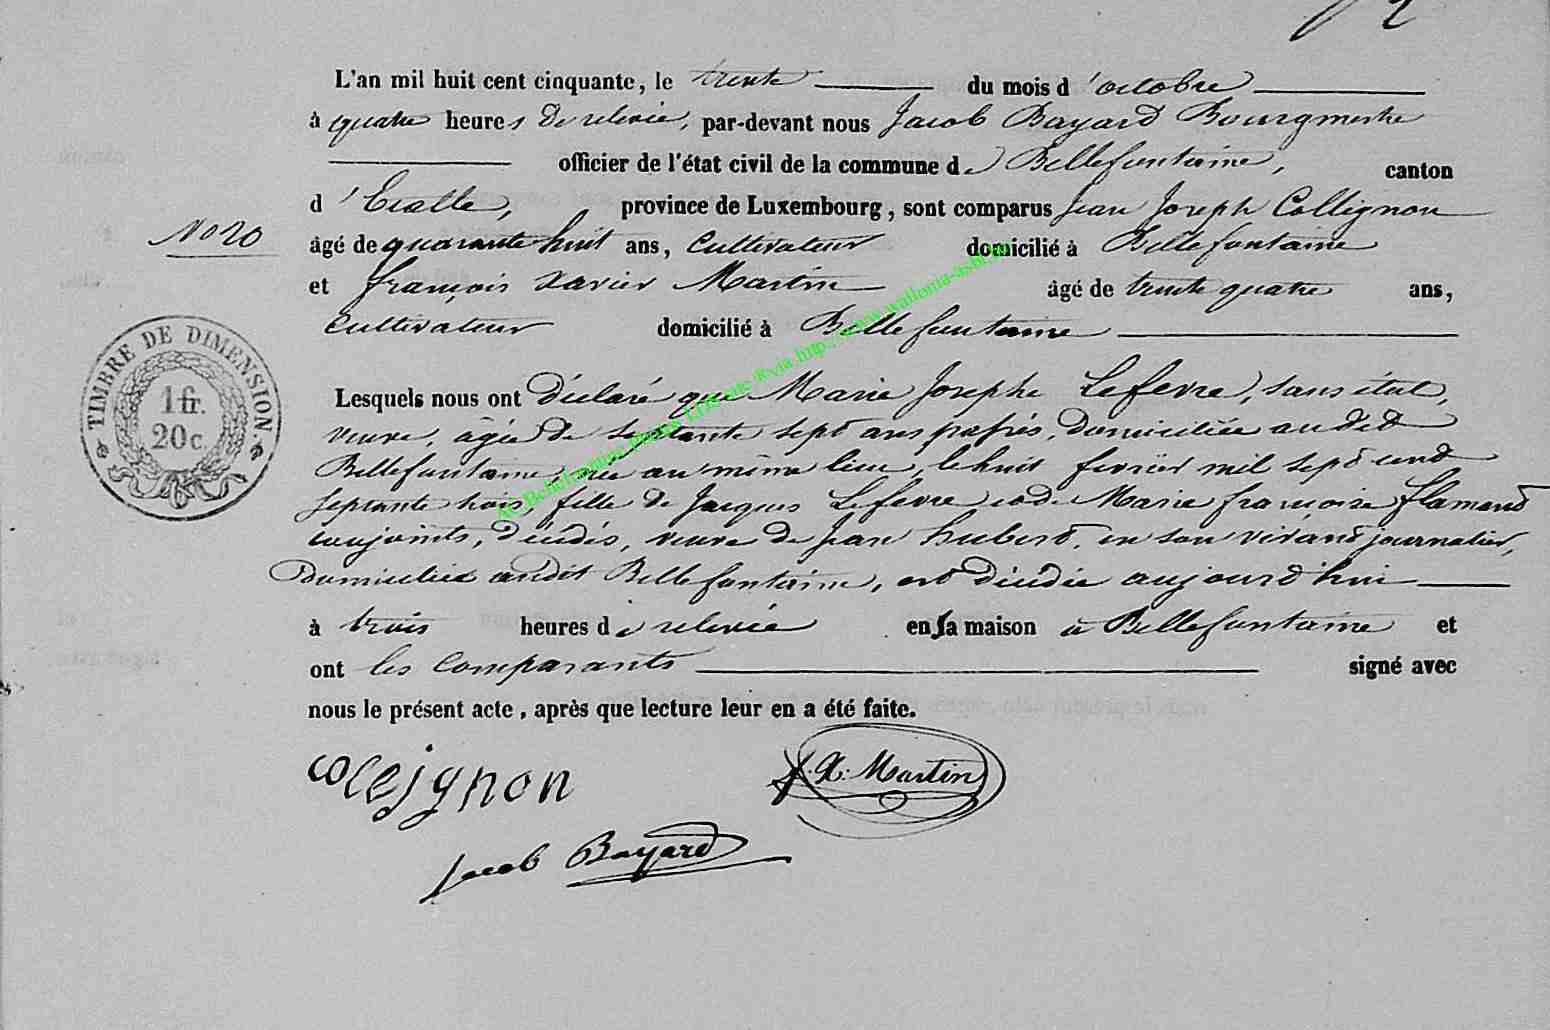 L'an mil huit cent cinquante, le trente du mois d'octobre
à quatre heures de relevée, par-devant nous Jacob Bayard Bourgmestre
officier de l'état civil de la commune de Bellefontaine, canton
d'Etalle, province de Luxembourg, sont comparus Jean Joseph Collignon
No 20
âgé de quarante huit ans, cultivateur domicilié à Bellefontaine
et françois xavier Martin âgé de trente quatre ans,
cultivateur domicilié à Bellefontaine
TIMBRE DE DIMENSION
1 fr.
20 c.
Lesquels nous ont déclaré que Marie Josephe Lefevre, sans état,
veuve, âgée de septante sept ans passés, domiciliée audit
Bellefontaine, née au même lieu, le huit fevrier mil sept cent
septante trois, fille de Jacques Lefevre et de Marie françoise flamand
conjoints, décédés, veuve de Jean hubert, en son vivant journalier,
Domicilié audit Bellefontaine, est décédée aujourd'hui
à trois heures de relevée en sa maison à Bellefontaine et
ont les comparants signé avec
nous le présent acte, après que lecture leur en a été faite.
colejgnon f. X. Martin
Jacob Bayard